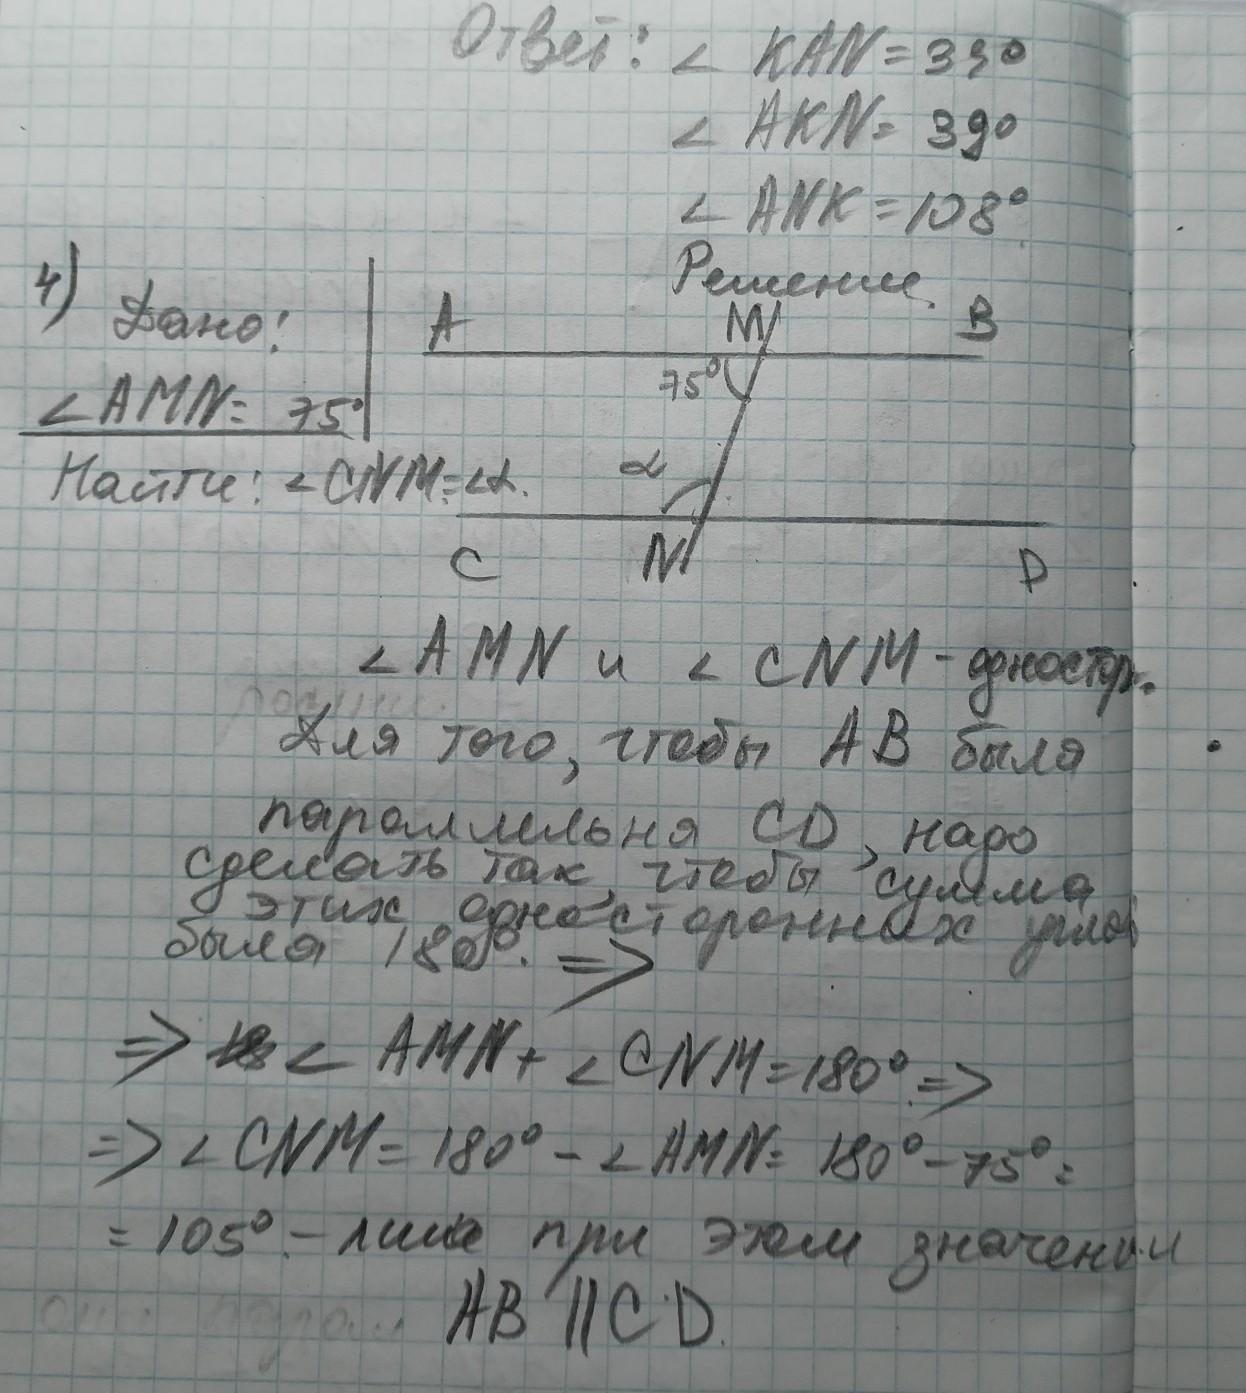 Ответ: ∠ KAN = 39°
∠ AKN = 39°
∠ ANK = 108°
Решение.
4) Дано:
∠AMN = 75°
Найти: ∠CNM = ∠α.
A M B
75°
α
C N D
∠AMN и ∠CNM - одностор.
Для того, чтобы AB была
параллельна CD, надо
сделать так, чтобы сумма
этих односторонних углов
была 180°. =>
=> ∠ AMN + ∠CNM = 180° =>
=> ∠CNM = 180° - ∠AMN = 180° - 75° =
= 105° - лишь при этом значении
AB || CD.